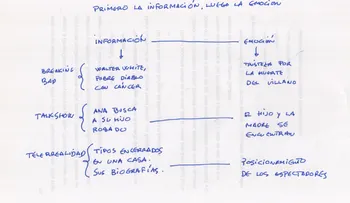 PRIMERO LA INFORMACIÓN, LUEGO LA EMOCIÓN
INFORMACIÓN
EMOCIÓN
BREAKING
BAD
WALTER WHITE,
POBRE DIABLO
CON CÁNCER
TRISTEZA POR
LA MUERTE
DEL VILLANO
TALKSHOW
ANA BUSCA
A SU HIJO
ROBADO
EL HIJO Y LA
MADRE SE
ENCUENTRAN
TELERREALIDAD
TIPOS ENCERRADOS
EN UNA CASA.
SUS BIOGRAFÍAS.
POSICIONAMIENTO
DE LOS ESPECTADORES